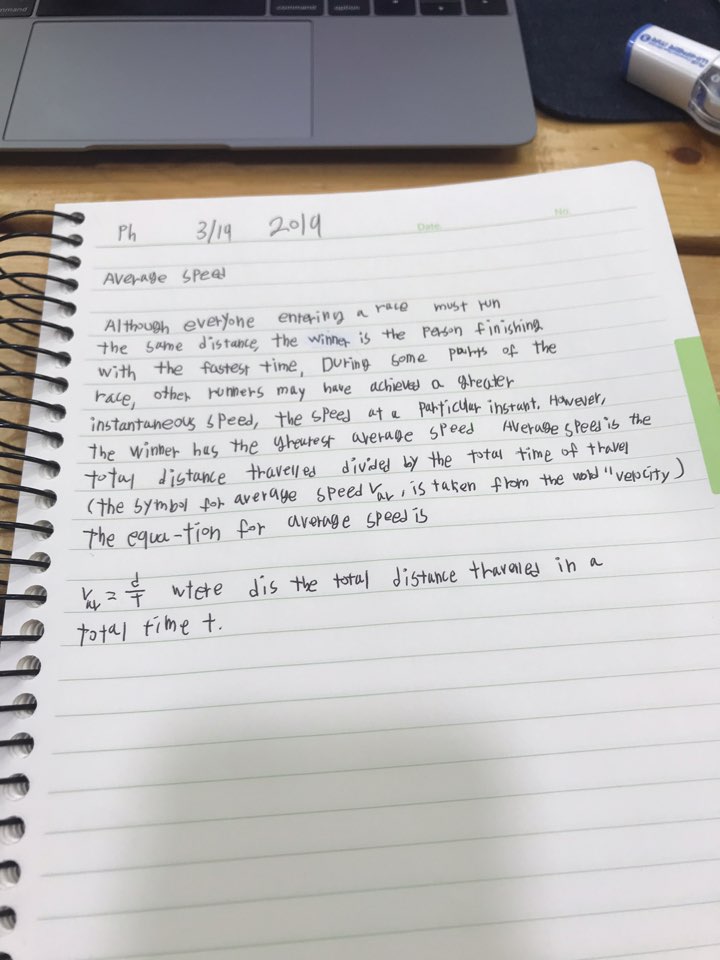 command
command option
Ph 3/19 2019
Date. No.
Average speed
Although everyone entering a race must run
the same distance, the winner is the person finishing
with the fastest time, During some parts of the
race, other runners may have achieved a greater
instantaneous speed, the speed at a particular instant. However,
the winner has the greatest average speed Average speed is the
total distance travelled divided by the total time of travel
(the symbol for average speed Vav, is taken from the word "velocity)
The equa-tion for average speed is
Vav = d/T wtere d is the total distance thravelled in a
total time t.